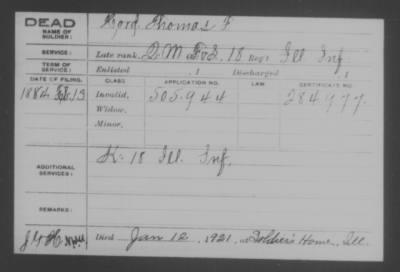 DEAD
NAME OF SOLDIER: Thomas F.
SERVICE: Late rank, Q.M. Sgt, 18 Reg't Ill Inf
TERM OF SERVICE: Enlisted , 1 Discharged , 1
DATE OF FILING. CLASS. APPLICATION NO. LAW. CERTIFICATE NO.
1884 13 Invalid, 505.944 284977.
Widow,
Minor,
ADDITIONAL SERVICES: K. 18 Ill. Inf.
REMARKS:
Died Jan 12, 1921, at Soldiers Home, Ill.